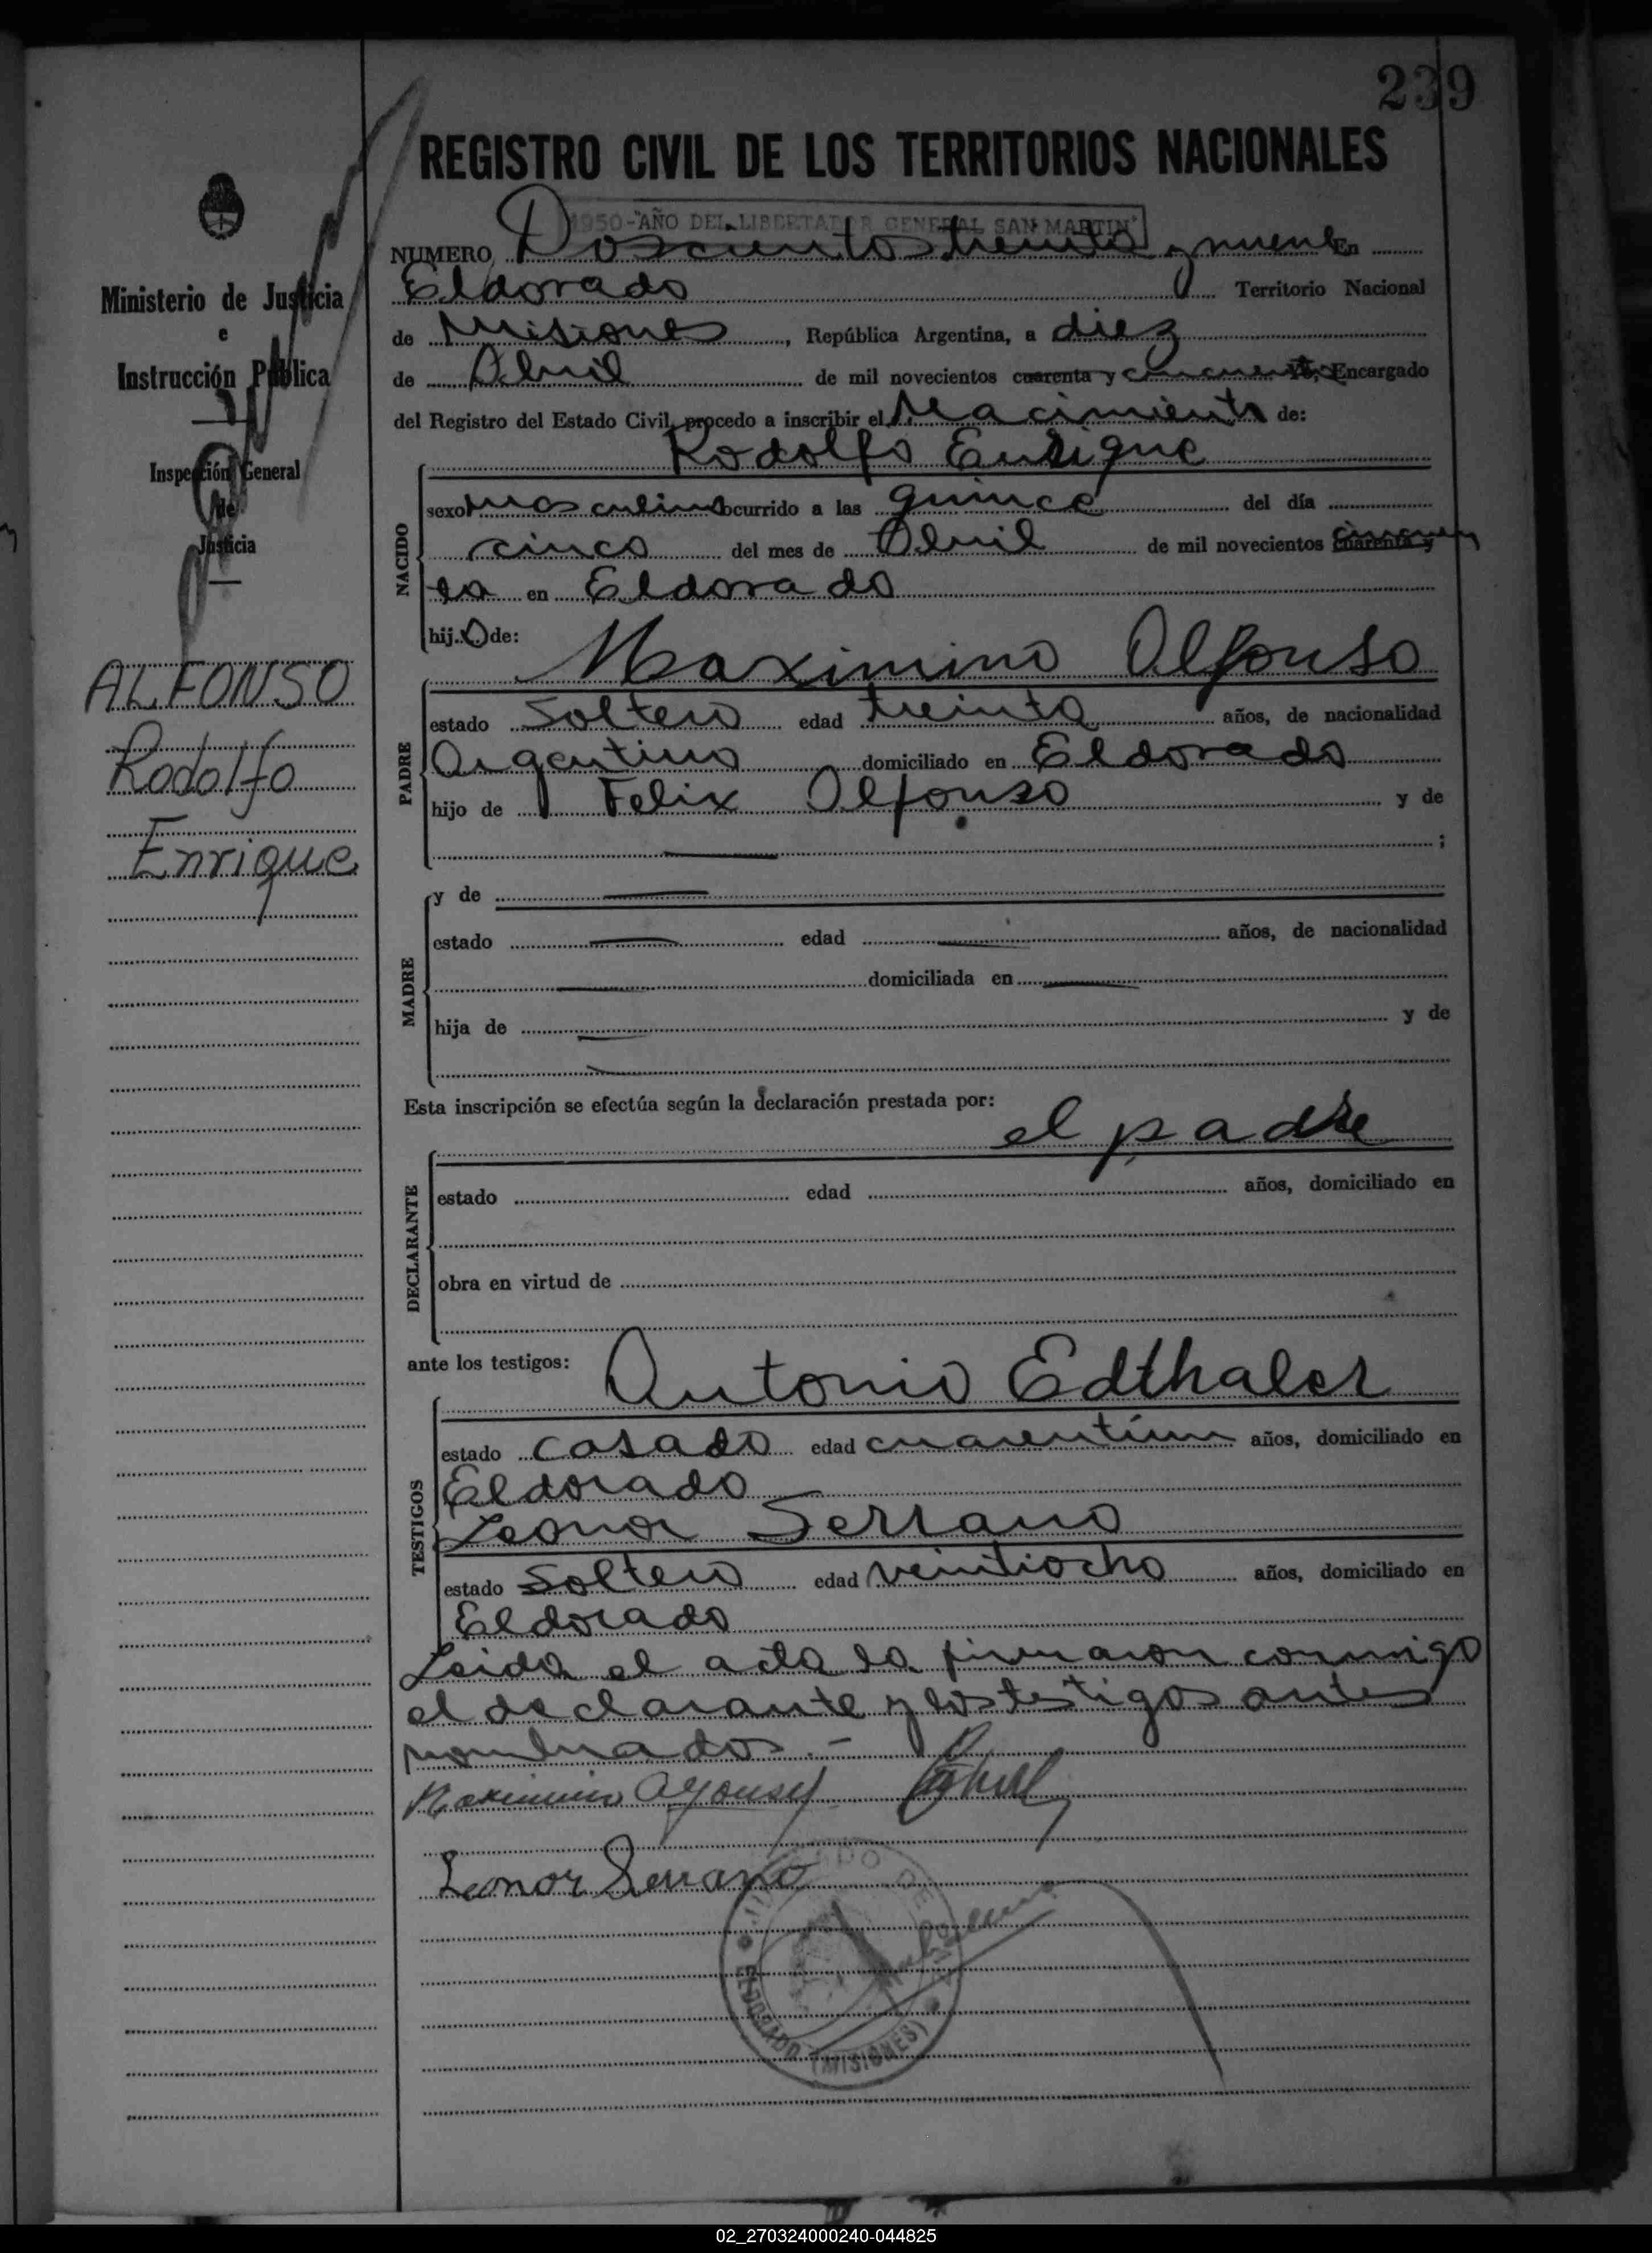 239
REGISTRO CIVIL DE LOS TERRITORIOS NACIONALES
1950-"AÑO DEL LIBERTADOR GENERAL SAN MARTIN"
NUMERO Doscientos treinta y nueve En
Eldorado Territorio Nacional
de Misiones, República Argentina, a diez
de Abril de mil novecientos cuarenta y cincuenta, Encargado
del Registro del Estado Civil, procedo a inscribir el Nacimiento de:
Rodolfo Enrique
NACIDO
sexo masculino ocurrido a las quince del día
cinco del mes de Abril de mil novecientos cuarenta y cincuen
ta en Eldorado
hijo de:
Maximino Alfonso
PADRE
estado soltero edad treinta años, de nacionalidad
Argentino domiciliado en Eldorado
hijo de Felix Alfonso y de
;
MADRE
y de
estado edad años, de nacionalidad
domiciliada en
hija de y de
Esta inscripción se efectúa según la declaración prestada por:
el padre
DECLARANTE
estado edad años, domiciliado en
obra en virtud de
ante los testigos:
Antonio Edthaler
TESTIGOS
estado casado edad cuarentiun años, domiciliado en
Eldorado
Leonor Serrano
estado soltero edad veintiocho años, domiciliado en
Eldorado
Leida el acta la firmaron conmigo
el declarante y los testigos antes
nombrados.-
Maximino Alfonso
Leonor Serrano
JUZGADO DE
ELDORADO (MISIONES)
Ministerio de Justicia
e
Instrucción Pública
Inspección General
de
Justicia
ALFONSO
Rodolfo
Enrique
02_270324000240-044825